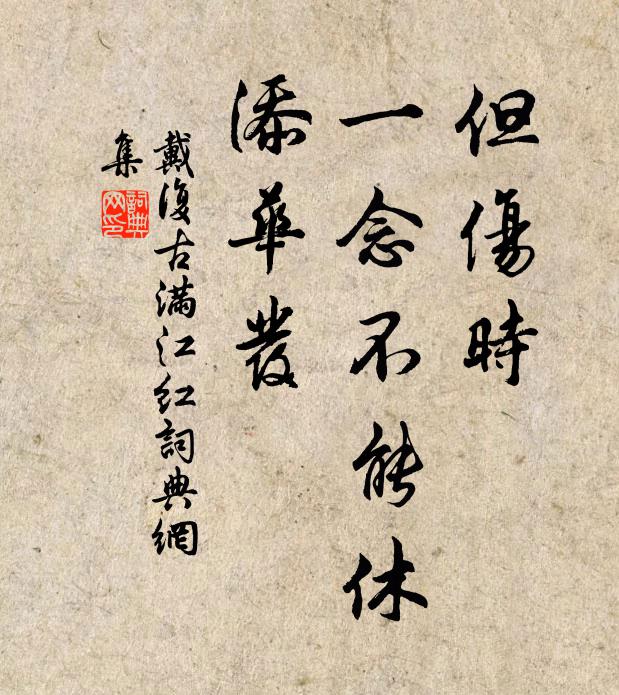 但傷時
一念不能休
添華發
戴復古滿江紅詞典網
集
詞典
网印